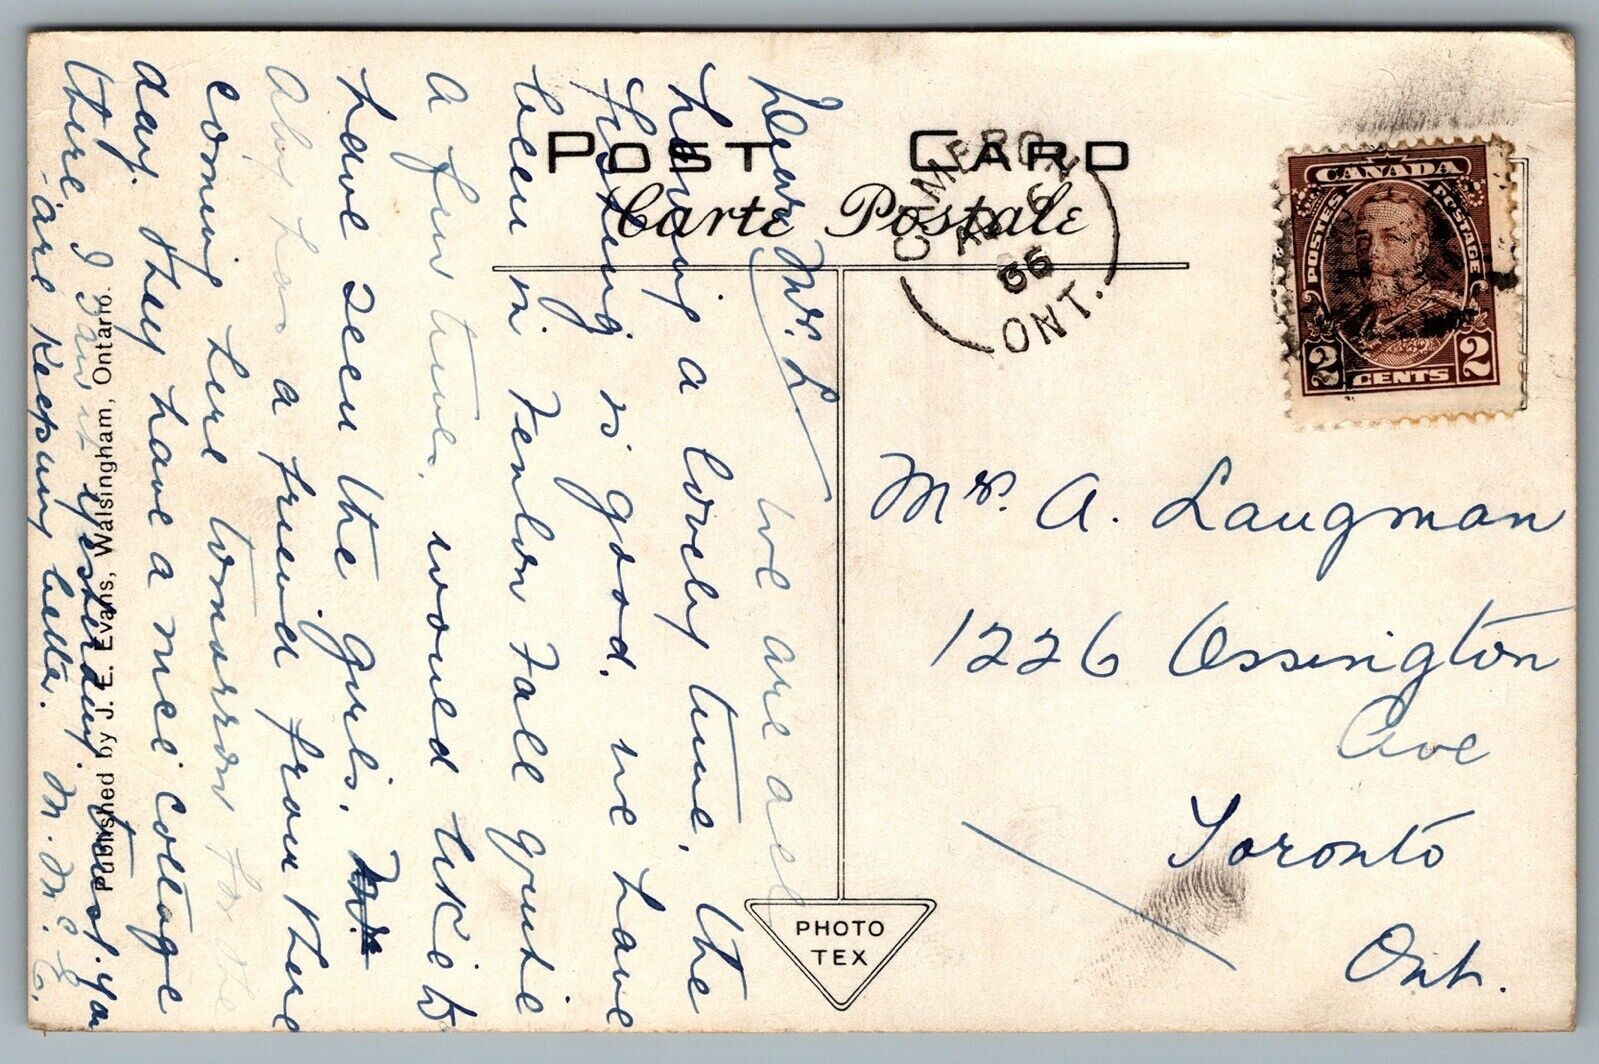 POST CARD
Carte Postale
CANADA
POSTES POSTAGE
2 CENTS 2
ONT.
36
Dear Mrs. L
we are all
having a lovely time, the
fishing is good. we have
been in Fenlon Fall quite
a few times. would like to
have seen the girls.
Aby has a friend from there
coming here tomorrow for the
day. they have a nice cottage
there. I saw it yesterday. trust you
are keeping better. M. Mc
Published by J. E. Evans, Walsingham, Ontario.
PHOTO
TEX
Mrs. A. Laugman
1226 Ossington
Ave
Toronto
Ont.